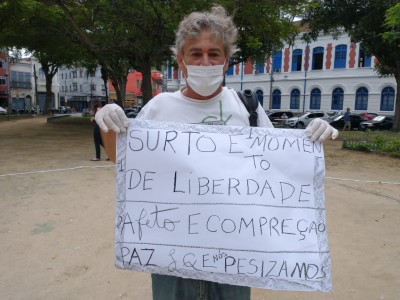 SURTO E MOMEN
TO
DE LIBERDADE
AfEtO E COMPREÇAO
PAZ & QE NÓS PESIZAMOS